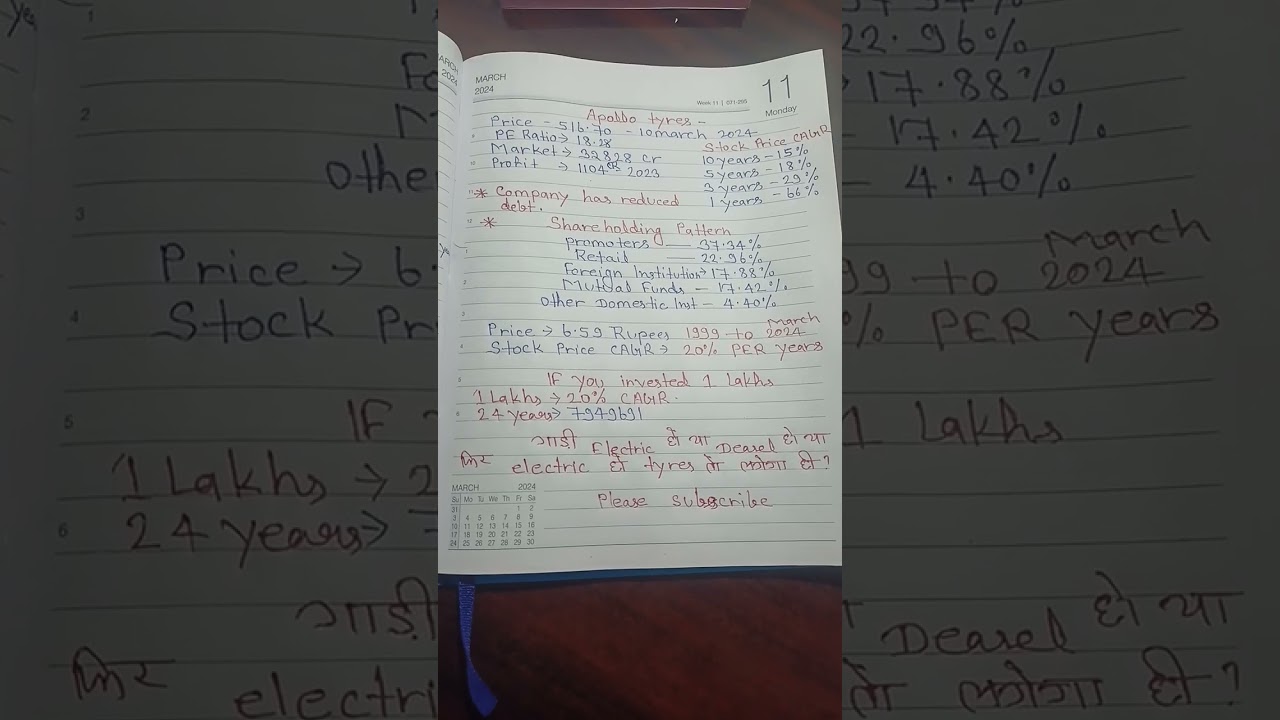 MARCH
2024
Week 11 | 071-295
11
Monday
Apollo tyres -
Price - 516.70 - 10 march 2024
PE Ratio → 18.28
Market → 32828 cr
Profit → 1104 cr 2023
Stock Price CAGR
10 years - 15%
5 years - 18%
3 years - 29%
1 years - 66%
* Company has reduced
debt.
* Shareholding Pattern
promoters — 37.34%
Retail — 22.96%
Foreign Institution → 17.88%
Mutual Funds - 17.42%
other Domestic Inst - 4.40%
Price → 6.59 Rupees 1999 to March 2024
Stock Price CAGR → 20% PER years
IF you invested 1 Lakhs
1 Lakhs → 20% CAGR.
24 years → 7949691
गाड़ी Electric हो या Deasel हो या
फिर electric हो tyres तो लगेगा ही?
Please subscribe
MARCH 2024
Su Mo Tu We Th Fr Sa
31 1 2
3 4 5 6 7 8 9
10 11 12 13 14 15 16
17 18 19 20 21 22 23
24 25 26 27 28 29 30